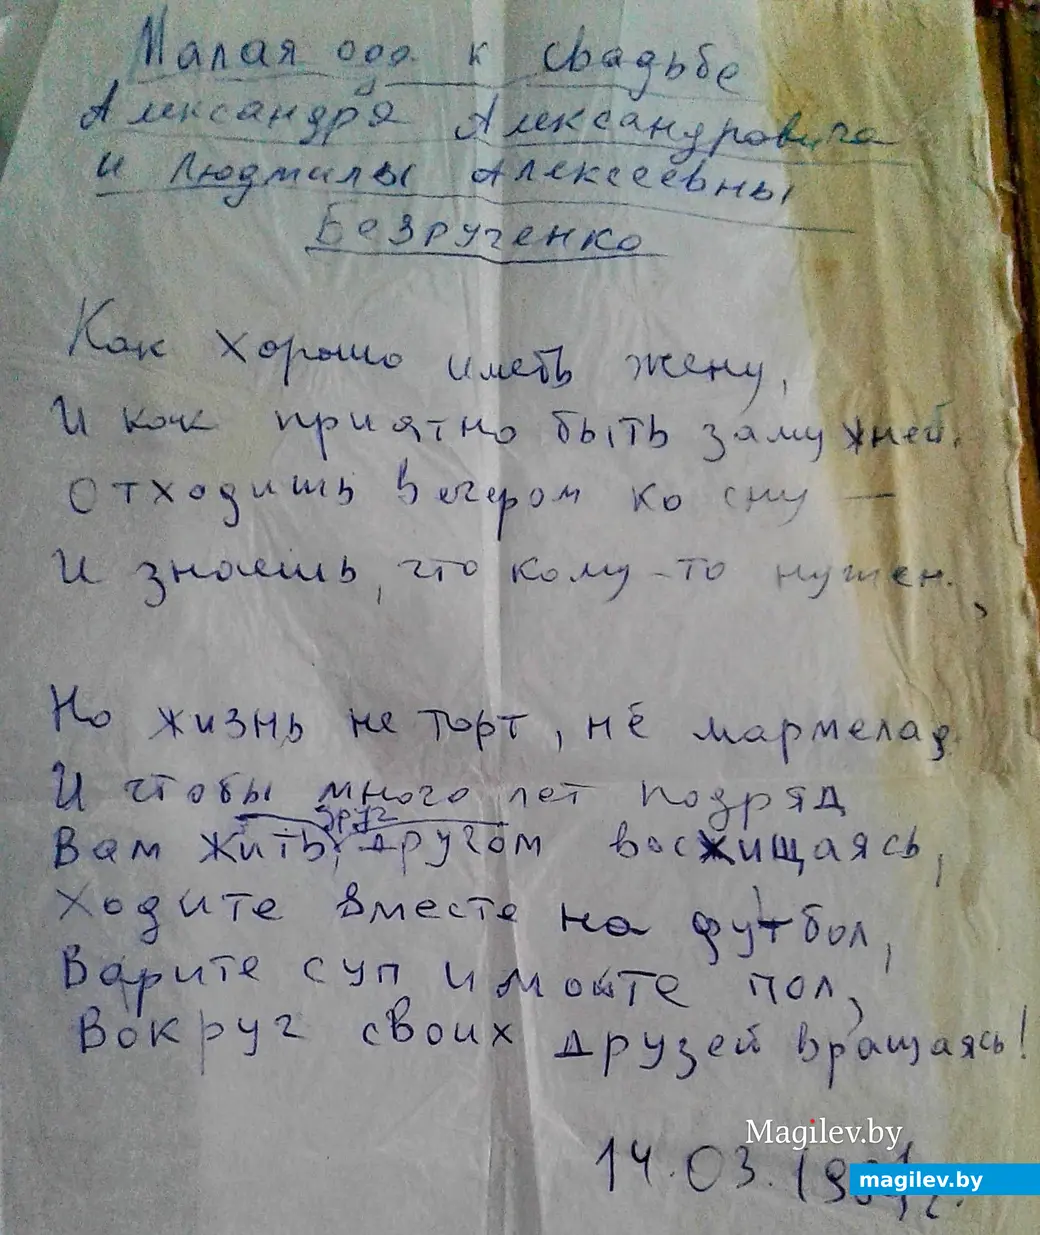 Малая ода к свадьбе
Александра Александровича
и Людмилы Алексеевны
Безрученко
Как хорошо иметь жену,
И как приятно быть замужней.
Отходишь вечером ко сну —
И знаешь, что кому-то нужен.,
Но жизнь не торт, не мармелад.
И чтобы много лет подряд
друг
Вам жить, другом восхищаясь,
Ходите вместе на футбол,
Варите суп и мойте пол,
Вокруг своих друзей вращаясь!
Magilev.by
14.03.
magilev.by